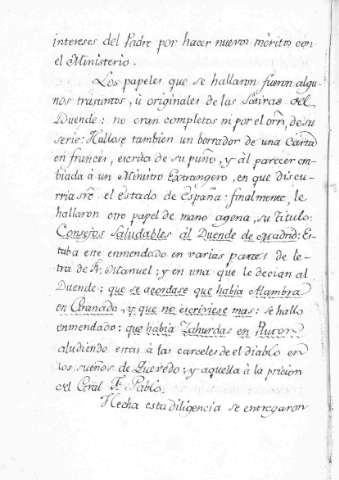 intereses del Padre por hacer nuevos méritos con
el Ministerio.
Los papeles que se hallaron fueron algu-
nos trasuntos, ú originales de las Sátiras del
Duende: no eran completos ni por el orñ, de su
serie: Hallose tambien un borrador de una Carta
en frances, escrita de su puño, y ál parecer em-
biada à un Ministro Extrangero, en que discu-
rria sre. el estado de España: finalmente, le
hallaron otro papel de mano agena, su titulo:
Consejos Saludables ál Duende de Madrid: Es-
taba este enmendado en varias partes de le-
tra de Fr. Manuel; y en una que le decian al
Duende: que se acordase que había Alambra
en Granada, y que no escriviese mas: se hallo
enmendado: que había Zahurdas en Pluton
aludiendo estas à las carceles de el diablo en
los sueños de Quevedo; y aquella à la prision
del Gral F. Pablo.
Hecha esta diligencia se entregaron